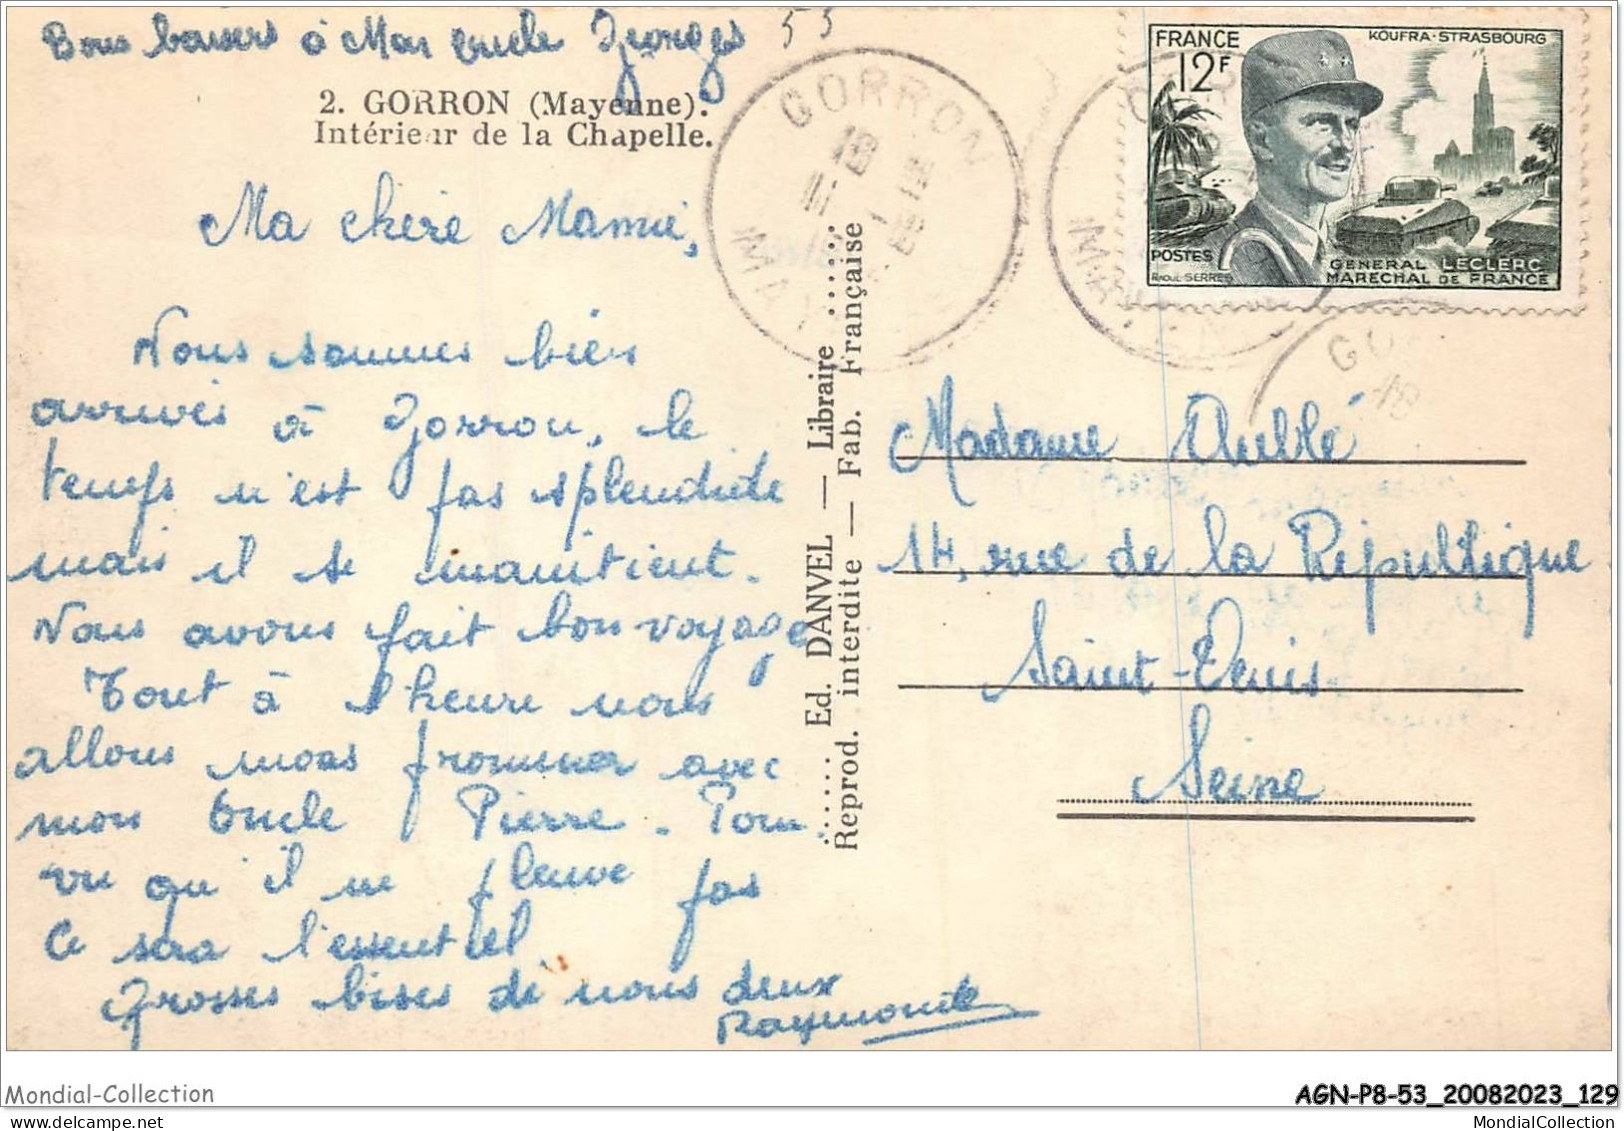 Bons baisers à Mon Oncle Georges
53
2. GORRON (Mayenne).
Intérieur de la Chapelle.
Ma chère Mamie,
Nous sommes bien
arrivés à Gorron, le
temps n'est pas splendide
mais il se maintient.
Nous avons fait bon voyage
Tout à l'heure nous
allons nous promener avec
mon Oncle Pierre. Pour
vu qu'il ne pleuve pas
ce sera l'essentiel
Grosses bises de nous deux
Raymonde
Ed. DANVEL — Libraire
Reprod. interdite — Fab. Française
GORRON
18
MAYENNE
FRANCE
12F
KOUFRA-STRASBOURG
POSTES
RAOUL-SERRES
GENERAL LECLERC
MARECHAL DE FRANCE
GO
18
Madame Aublé
14, rue de la République
Saint-Denis
Seine
Mondial-Collection
AGN-P8-53_20082023_129
MondialCollection.com
MondialCollection